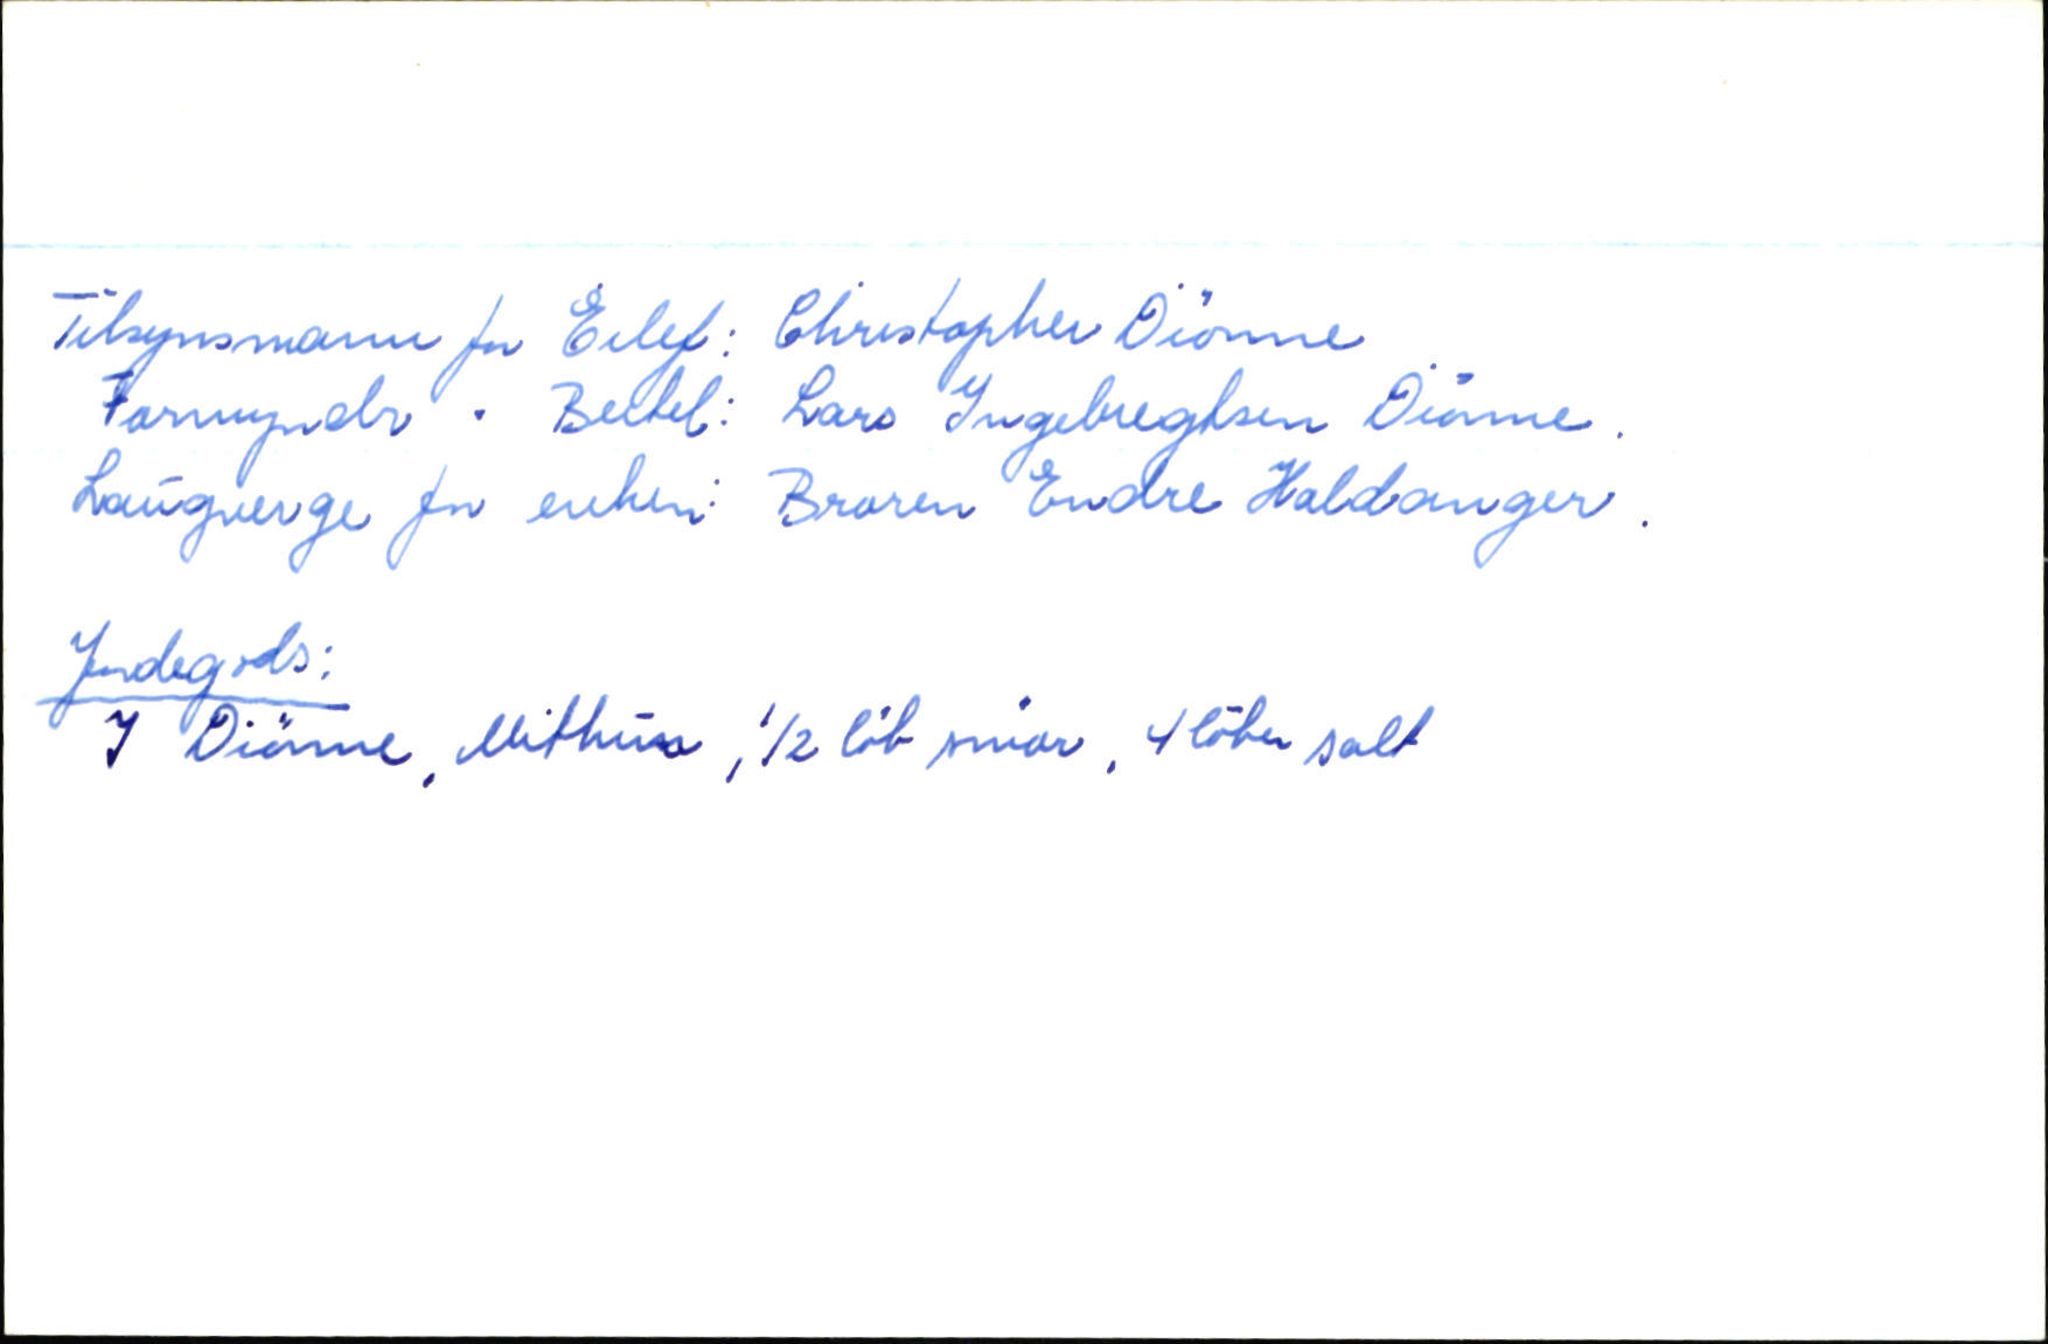 Tilsynsmann for Eilef: Christopher Diönne
Formyndr . Bertel: Lars Ingebregtsen Diönne.
Laugverge for enken: Broren Endre Haldanger.
Jordegods:
I Diönne, Mithun, 1/2 löb smör, 4 löber salt